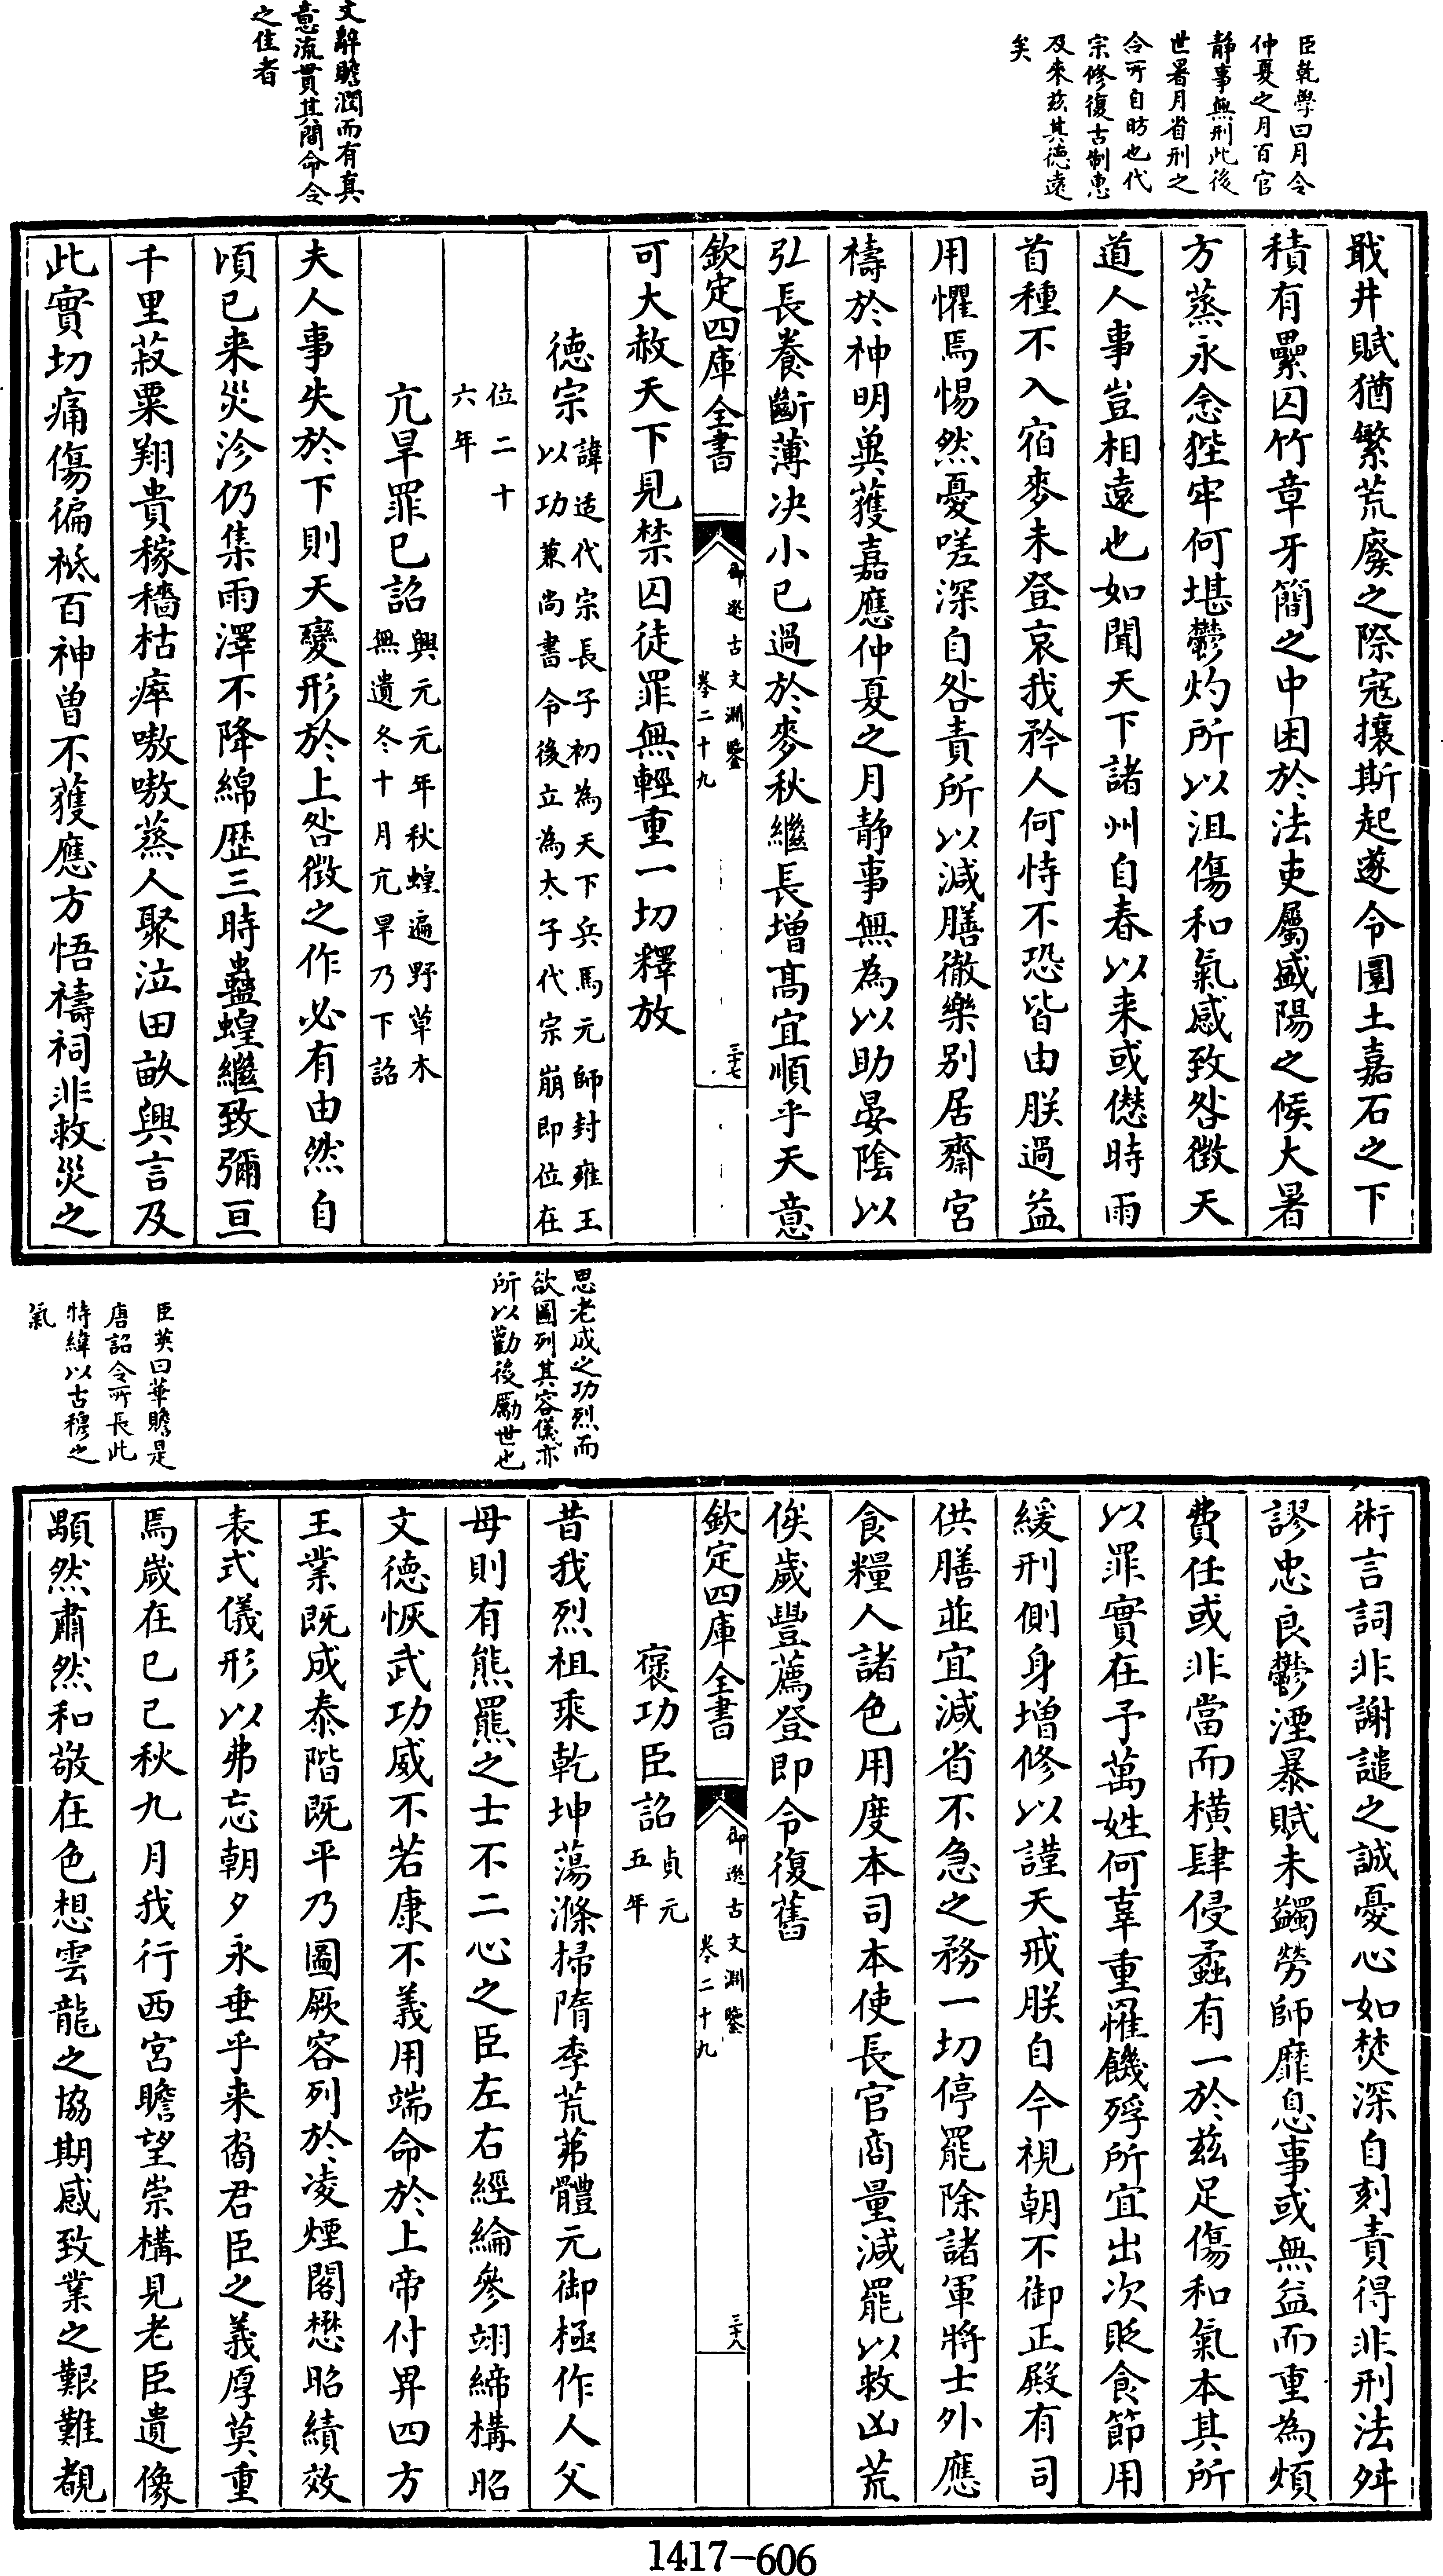 臣乾學曰月令
仲夏之月百官
靜事無刑此後
世暑月省刑之
令所自昉也代
宗修復古制惠
及來兹其德遠
矣
文辭贍潤而有真
意流貫其間命令
之佳者
戢井賦猶繁荒廢之際寇攘斯起遂令圜土嘉石之下
積有纍囚竹章牙簡之中困於法吏屬盛陽之候大暑
方蒸永念狴牢何堪鬱灼所以沮傷和氣感致咎徴天
道人事豈相遠也如聞天下諸州自春以来或愆時雨
首種不入宿麥未登哀我矜人何恃不恐皆由朕過益
用懼焉惕然憂嗟深自咎責所以減膳徹樂別居齋宮
禱於神明冀獲嘉應仲夏之月靜事無為以助晏陰以
弘長養斷薄决小已過於麥秋繼長增髙宜順乎天意
欽定四庫全書
御選古文淵鑒
卷二十九
三十七
可大赦天下見禁囚徒罪無輕重一切釋放
德宗諱适代宗長子初為天下兵馬元師封雍王
以功兼尚書令後立為太子代宗崩即位在
位二十
六年
亢旱罪己詔興元元年秋蝗遍野草木
無遺冬十月亢旱乃下詔
夫人事失於下則天變形於上咎徴之作必有由然自
頃已来災沴仍集雨澤不降綿歴三時蟲蝗繼致彌亘
千里菽粟翔貴稼穡枯瘁嗷嗷蒸人聚泣田畝興言及
此實切痛傷徧祗百神曽不獲應方悟禱祠非救災之
思老成之功烈而
欲圖列其容儀亦
所以勸後厲世也
臣英曰華贍是
唐詔令所長此
特緯以古穆之
氣
術言詞非謝譴之誠憂心如焚深自刻責得非刑法舛
謬忠良鬱湮暴賦未蠲勞師靡息事或無益而重為煩
費任或非當而横肆侵蟊有一於兹足傷和氣本其所
以罪實在予萬姓何辜重罹饑殍所宜出次貶食節用
緩刑側身增修以謹天戒朕自今視朝不御正殿有司
供膳並宜減省不急之務一切停罷除諸軍將士外應
食糧人諸色用度本司本使長官商量減罷以救凶荒
俟歲豐薦登即令復舊
欽定四庫全書
御選古文淵鑒
卷二十九
三十八
褒功臣詔貞元
五年
昔我烈祖乘乾坤蕩滌掃隋季荒茀體元御極作人父
母則有熊羆之士不二心之臣左右經綸參翊締構昭
文德恢武功威不若康不義用端命於上帝付畀四方
王業既成泰階既平乃圖厥容列於凌煙閣懋昭績效
表式儀形以弗忘朝夕永垂乎来裔君臣之義厚莫重
焉歲在己巳秋九月我行西宮瞻望崇構見老臣遺像
顒然肅然和敬在色想雲龍之協期感致業之艱難覩
1417—606